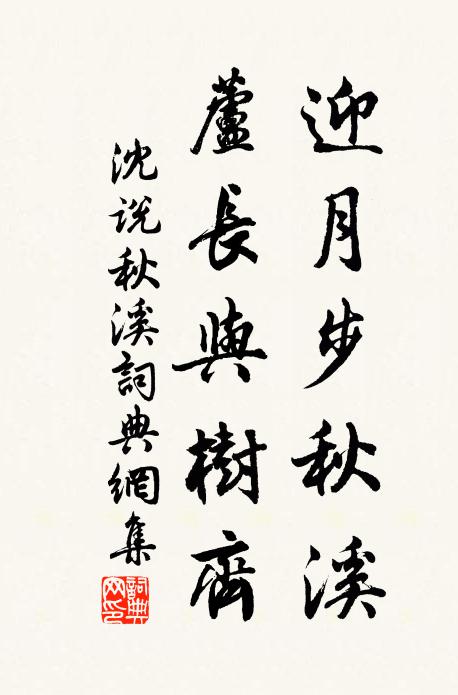 迎月步秋溪
蘆長與樹齊
沈説秋溪詞典網集
詞典网印